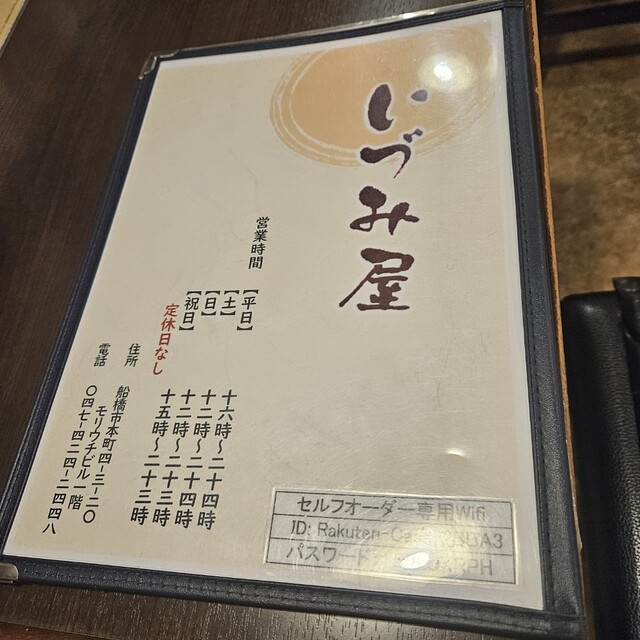 いづみ屋
営業時間
【平日】 十六時〜二十四時
【土】 十二時〜二十四時
【日】 十二時〜二十三時
【祝日】 十五時〜二十三時
定休日なし
住所 船橋市本町四-三-二〇
モリウチビル一階
電話 〇四七-四二四-二四四八
セルフオーダー専用Wifi
ID: Rakuten-
パスワード